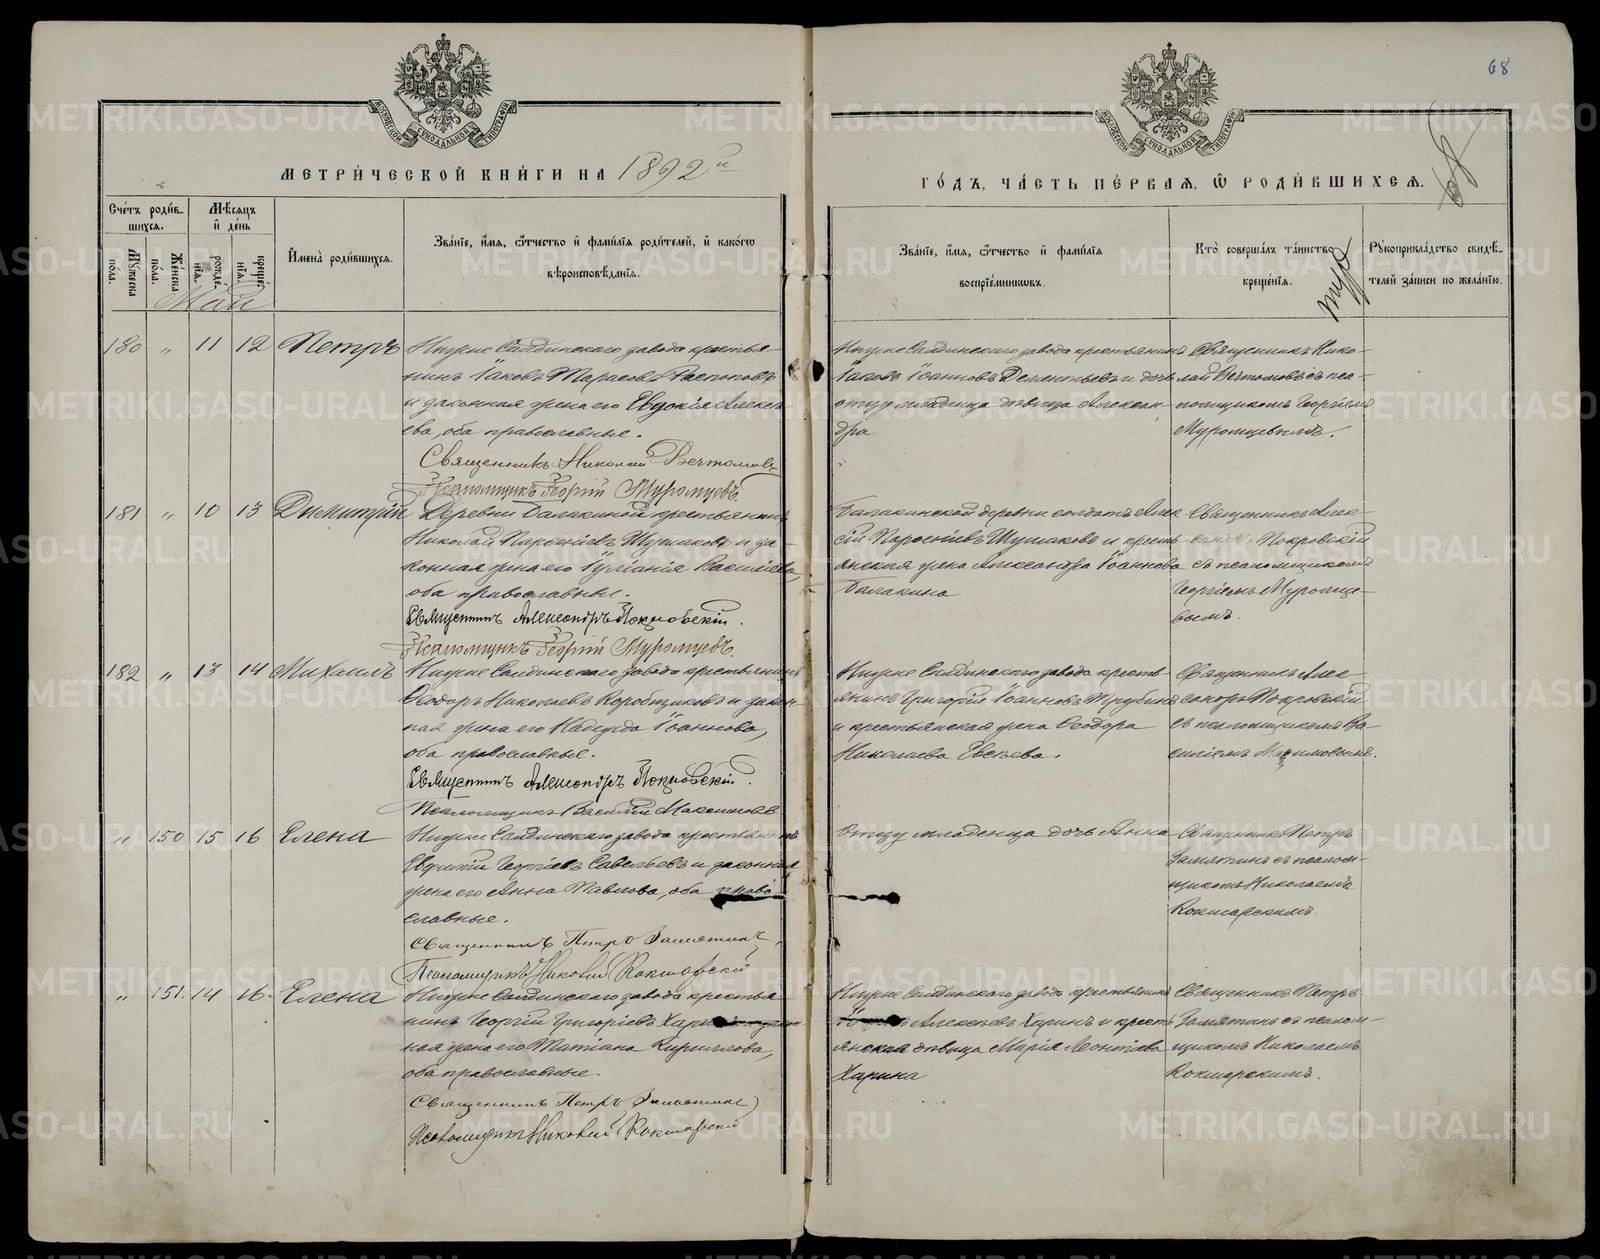 68
68
МОСКОВСКОЙ СѴНОДАЛЬНОЙ ТИПОГРАФІИ
МОСКОВСКОЙ СѴНОДАЛЬНОЙ ТИПОГРАФІИ
МЕТРИ́ЧЕСКОЙ КНИ́ГИ НА 1892й
ГО́ДЪ, ЧА́СТЬ ПЕ́РВАЯ, Ѽ РОДИ́ВШИХСЯ.
Сче́тъ роди́в-
шихся.
Мѣ́сяцъ
и҆ де́нь
Му́жеска по́ла.
Же́нска по́ла.
рожде́нїя.
креще́нїя.
И҆мена̀ роди́вшихся.
Зва́нїе, и҆́мя, ѻ҆́тчество и҆ фами́лїя роди́телей, и҆ како́гѡ
вѣроисповѣ́данїя.
Зва́нїе, и҆́мя, ѻ҆́тчество и҆ фами́лїя
воспрїе́мникѡвъ.
Кто̀ соверша́лъ та́инство
креще́нїя.
Рꙋкоприкла́дство свидѣ́-
телей за́писи по жела́нїю.
Май
180 " 11 12 Петръ
Нижне Салдинскаго завода крестья-
нинъ Іаковъ Тарасовъ Распоповъ
и законная жена его Евдокія Алексѣ-
ева, оба православные.
Священникъ Николай Вечтомовъ
Псаломщикъ Георгій Муромцевъ.
Нижне Салдинскаго завода крестьянинъ
Іаковъ Іоанновъ Дементьевъ и дочь
отцу младенца дѣвица Алексан-
дра
Священникъ Нико-
лай Вечтомовъ съ пса-
ломщикомъ Георгіемъ
Муромцевымъ.
181 " 10 13 Димитрій
Деревни Балакиной крестьянинъ
Николай Парѳеніевъ Шушаковъ и за-
конная жена его Іуліанія Василіева,
оба православные.
Священникъ Александръ Покровскій.
Псаломщикъ Георгій Муромцевъ.
Балакинской деревни солдатъ Алек
сій Парѳеніевъ Шушаковъ и кресть
янская жена Александра Іоаннова
Балакина
Священникъ Алек-
сандръ Покровскій
съ псаломщикомъ
Георгіемъ Муромце-
вымъ.
182 " 13 14 Михаилъ
Нижне Салдинскаго завода крестьянинъ
Ѳеодоръ Николаевъ Коробщиковъ и закон-
ная жена его Надежда Іоаннова,
оба православные.
Священникъ Александръ Покровскій.
Псаломщикъ Василій Максимовъ
Нижне Салдинскаго завода кресть-
янинъ Григорій Іоанновъ Трубинъ
и крестьянская жена Ѳеодора
Николаева Евсѣева.
Священникъ Алек-
сандръ Покровскій
съ псаломщикомъ Ва-
силіемъ Максимовымъ.
" 150 15 16 Елена
Нижне Салдинскаго завода крестьянинъ
Евдокій Георгіевъ Савельевъ и законная
жена его Анна Павлова, оба право-
славные.
Священникъ Петръ Замятинъ,
Псаломщикъ Николай Кокшарскій
Отцу младенца дочь Анна
Священникъ Петръ
Замятинъ съ псалом-
щикомъ Николаемъ
Кокшарскимъ.
" 151. 14 16. Елена
Нижне Салдинскаго завода крестья-
нинъ Георгій Григоріевъ Харинъ
ная жена его Татіана Кириллова,
оба православные.
Священникъ Петръ Замятинъ
Псаломщикъ Николай Кокшарскій
Нижне Салдинскаго завода крестьянинъ
Алексѣевъ Харинъ и кресть
янская дѣвица Марія Леонтіева
Харина
Священникъ Петръ
Замятинъ съ псалом-
щикомъ Николаемъ
Кокшарскимъ.
METRIKI.GASO-URAL.RU